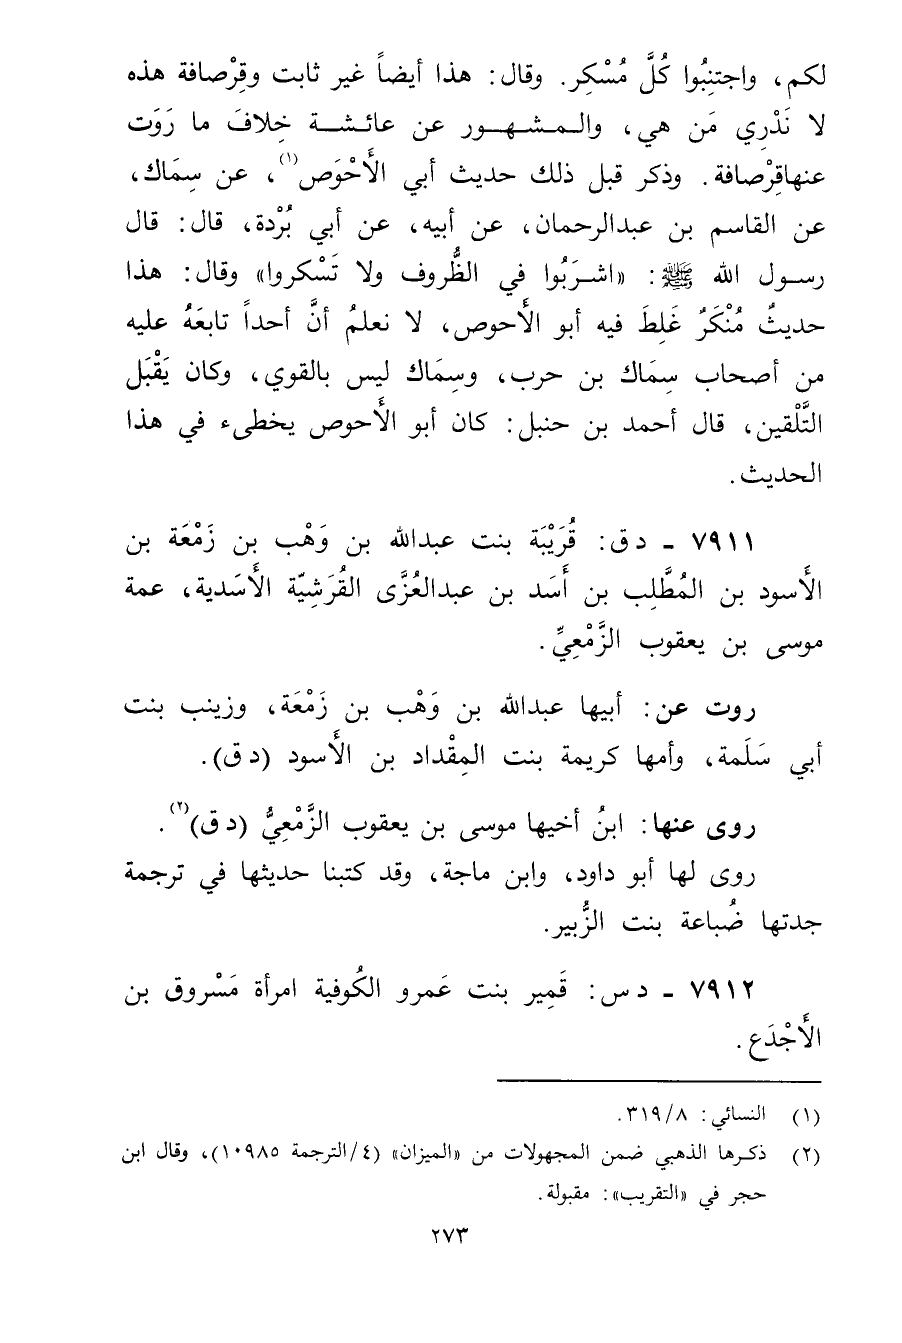 لكم، واجتنِبُوا كُلَّ مُسْكِر. وقال: هذا أيضاً غير ثابت وقِرْصافة هذه
لا نَدْرِي مَن هي، والمشهور عن عائشة خِلافَ ما رَوَت
عنهاقِرْصافة. وذكر قبل ذلك حديث أبي الأَحْوَص(١)، عن سِمَاك،
عن القاسم بن عبدالرحمان، عن أبيه، عن أبي بُرْدة، قال: قال
رسول الله ﷺ: «اشرَبُوا في الظُّروف ولا تَسْكروا» وقال: هذا
حديثٌ مُنْكَرٌ غَلِطَ فيه أبو الأَحوص، لا نعلمُ أنَّ أحداً تابعَهُ عليه
من أصحاب سِمَاك بن حرب، وسِمَاك ليس بالقوي، وكان يَقْبَل
التَّلْقين، قال أحمد بن حنبل: كان أبو الأَحوص يخطىء في هذا
الحديث.
٧٩١١ ـ د ق: قُرَيْبَة بنت عبدالله بن وَهْب بن زَمْعَة بن
الأَسود بن المُطَّلِب بن أَسَد بن عبدالعُزَّى القُرَشِيّة الأَسَدية، عمة
موسى بن يعقوب الزَّمْعِيِّ.
روت عن: أبيها عبدالله بن وَهْب بن زَمْعَة، وزينب بنت
أبي سَلَمة، وأمها كريمة بنت المِقْداد بن الأَسود (د ق).
روى عنها: ابنُ أخيها موسى بن يعقوب الزَّمْعِيُّ (د ق)(٢).
روى لها أبو داود، وابن ماجة، وقد كتبنا حديثها في ترجمة
جدتها ضُباعة بنت الزُّبير.
٧٩١٢ ـ د س: قَمِير بنت عَمرو الكُوفية امرأة مَسْروق بن
الأَجْدَع.
(١) النسائي: ٨/ ٣١٩.
(٢) ذكرها الذهبي ضمن المجهولات من «الميزان» (٤/ الترجمة ١٠٩٨٥)، وقال ابن
حجر في «التقريب»: مقبولة.
٢٧٣